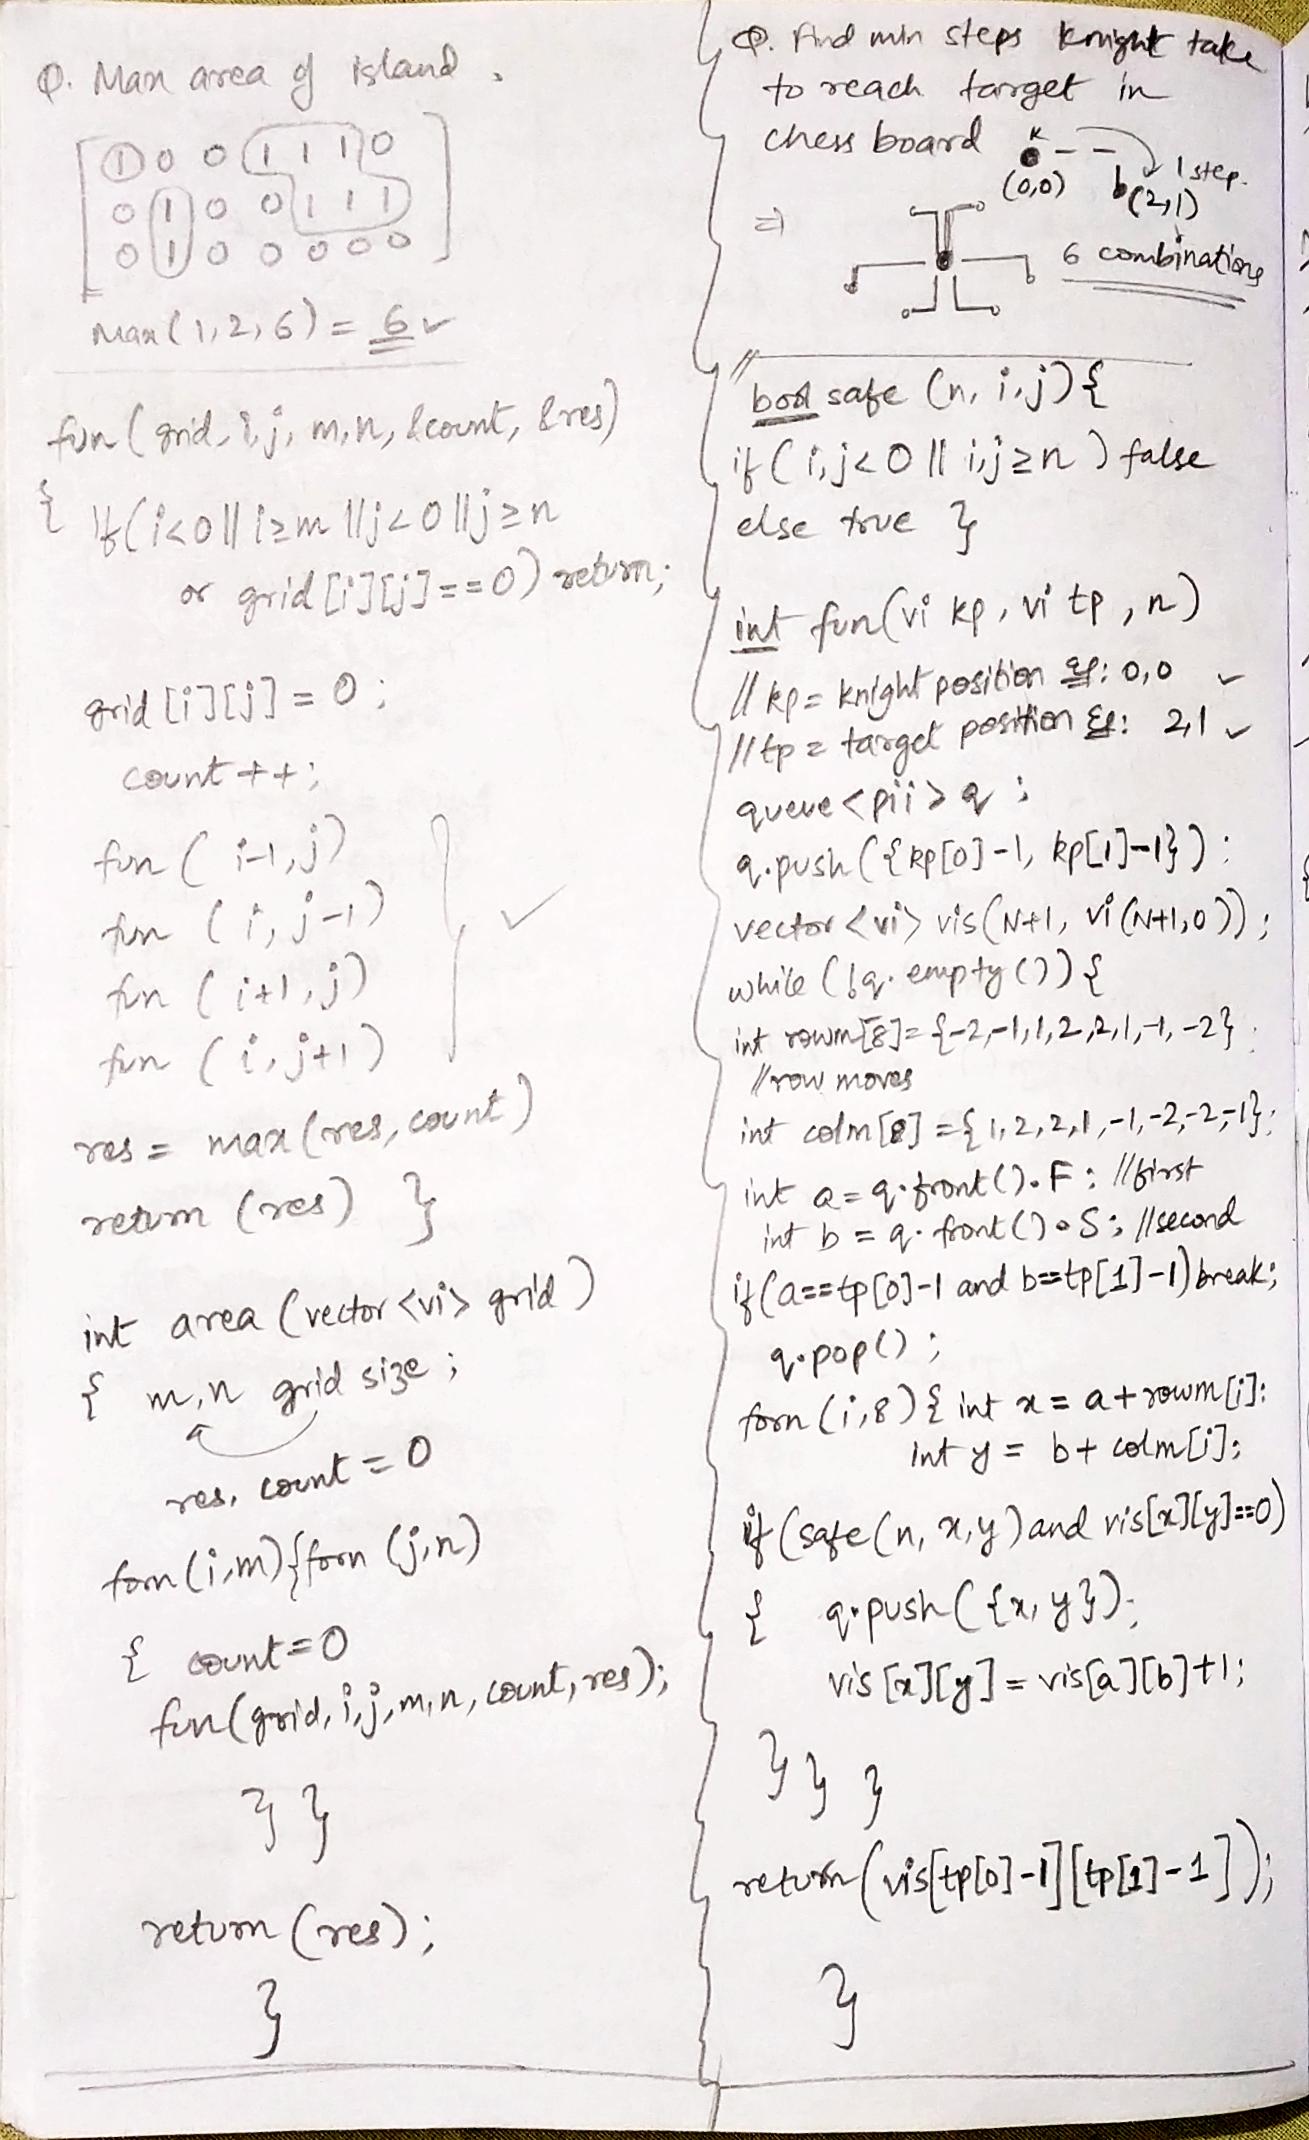 Q. Max area of island.
1 0 0 1 1 1 0
0 1 0 0 1 1 1
0 1 0 0 0 0 0
Max(1,2,6) = 6
fun(grid, i,j, m,n, &count, &res)
{ if(i<0 || i≥m || j<0 || j≥n
or grid[i][j]==0) return;
grid[i][j] = 0;
count++;
fun ( i-1, j)
fun ( i, j-1)
fun ( i+1, j)
fun ( i, j+1)
res = max(res, count)
return (res) }
int area (vector<vi> grid)
{ m,n grid size;
res, count = 0
forn(i,m){forn (j,n)
{ count=0
fun(grid, i,j,m,n, count, res);
} }
return (res);
}
Q. Find min steps knight take
to reach target in
chess board
K
1 step.
(0,0) (2,1)
⇒
6 combinations
// bool safe (n, i,j){
if ( i,j<0 || i,j≥n ) false
else true }
int fun(vi kp, vi tp, n)
// kp = knight position eg: 0,0 ✓
// tp = target position Eg: 2,1 ✓
queue<pii> q;
q.push({kp[0]-1, kp[1]-1});
vector<vi> vis(N+1, vi(N+1,0));
while (!q.empty()){
int rowm[8]={-2,-1,1,2,2,1,-1,-2}.
//row moves
int colm[8]={1,2,2,1,-1,-2,-2,-1};
int a = q.front().F; //first
int b = q.front().S; //second
if(a==tp[0]-1 and b==tp[1]-1) break;
q.pop();
forn(i,8){ int x = a+rowm[i];
int y = b+ colm[i];
if (safe(n, x,y) and vis[x][y]==0)
{ q.push({x, y});
vis[x][y] = vis[a][b]+1;
} } }
return(vis[tp[0]-1][tp[1]-1]);
}